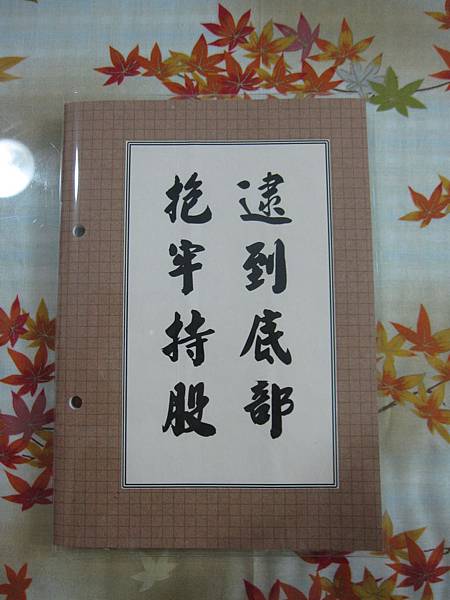 逮到底部
抱牢持股